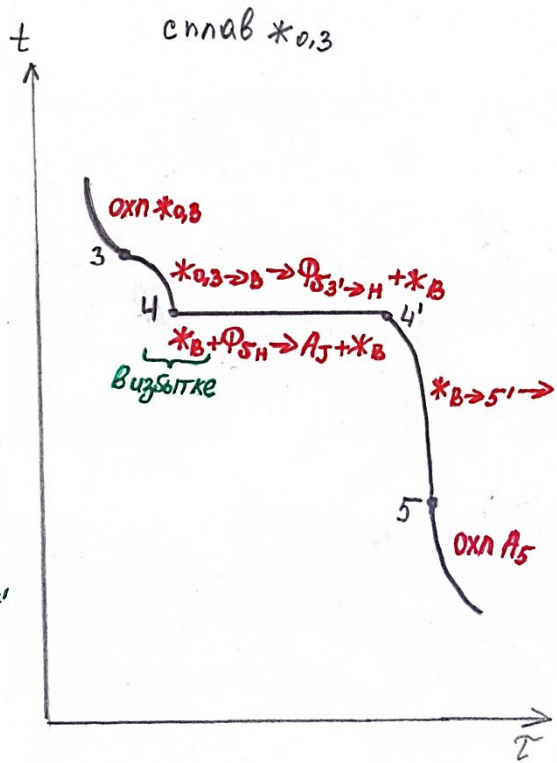 сплав ж0,3
t
охл ж0,3
3
ж0,3→B→Ф δ3'→H + жB
4
4'
жB+ФδH→AJ+жB
в избытке
жB→5'→
5
охл A5
τ